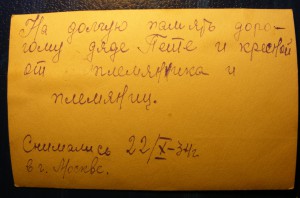 На долгую память доро-
гому дяде Пете и кресной
от племянника и
племянниц.
Снимались 22/X-34г
в г. Москве.